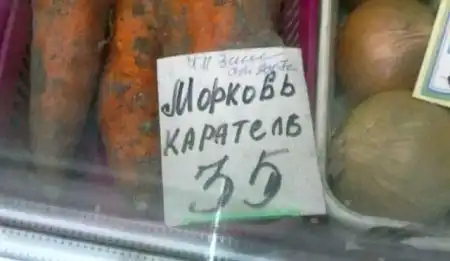 МОРКОВЬ
КАРАТЕЛЬ
35